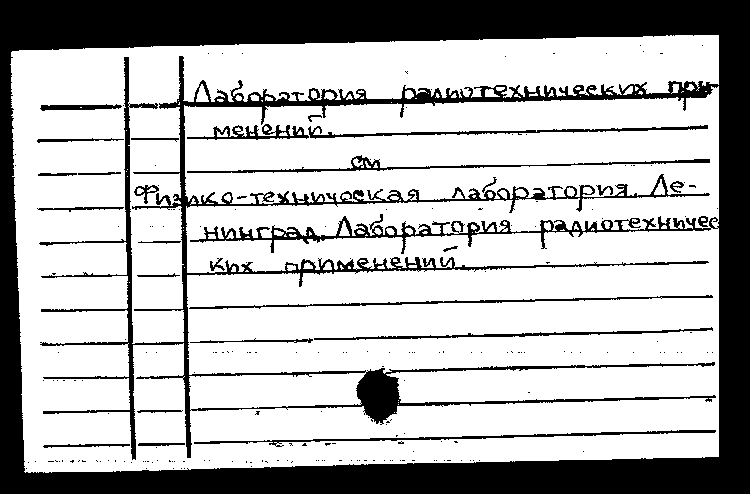 Лаборатория радиотехнических при-
менений.
см
Физико-техническая лаборатория. Ле-
нинград. Лаборатория радиотехничес
ких применений.